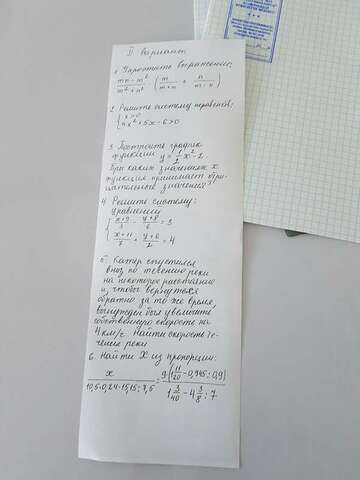 II вариант
1. Упростите выражение:
mn - m² / m² + n² · ( m / m+n + n / m-n )
2. Решите систему неравенств:
{ x > 0
x² + 5x - 6 > 0
3. Построите график
функции y = 1/2 x² - 2
При каких значениях x
функция принимает отри-
цательные значения?
4. Решите систему:
уравнений
{ x+9 / 3 - y+8 / 6 = 3
x+11 / 7 + y+6 / 2 = 4
5. Катер спустился
вниз по течению реки
на некоторое расстояние
и, чтобы вернуться
обратно за то же время,
вынужден был увеличить
собственную скорость на
4 км/ч. Найти скорость те-
чение реки
6. Найти X из пропорции:
x / 10,5·0,24-15,15:7,5 = 9(11/20 - 0,945:0,9) / 1 3/40 - 4 3/8 : 7